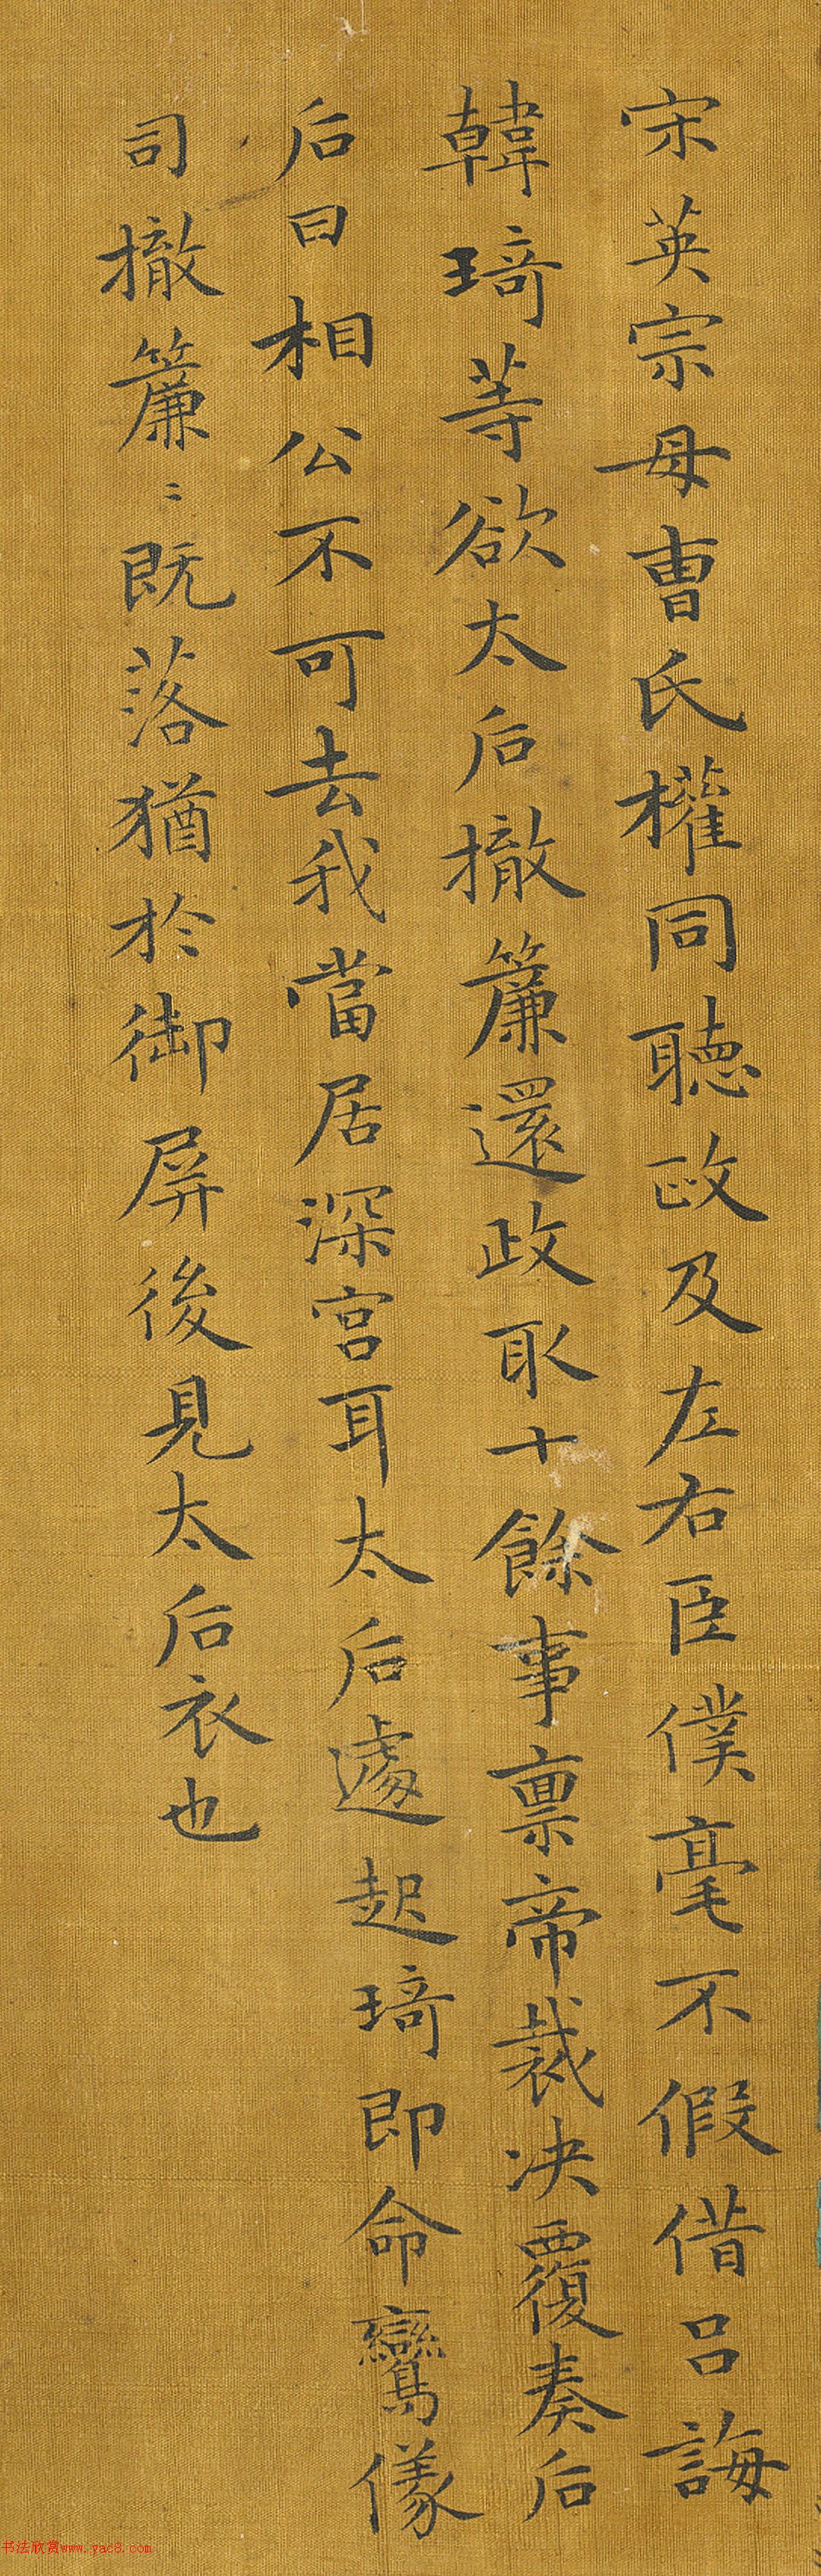 宋英宗母曹氏權同聽政及左右臣僕毫不假借呂誨
韓琦等欲太后撤簾還政取十餘事禀帝裁决覆奏后
后曰相公不可去我當居深宫耳太后遽起琦即命鸞儀
司撤簾〻既落猶於御屏後見太后衣也
书法欣赏www.yac8.com